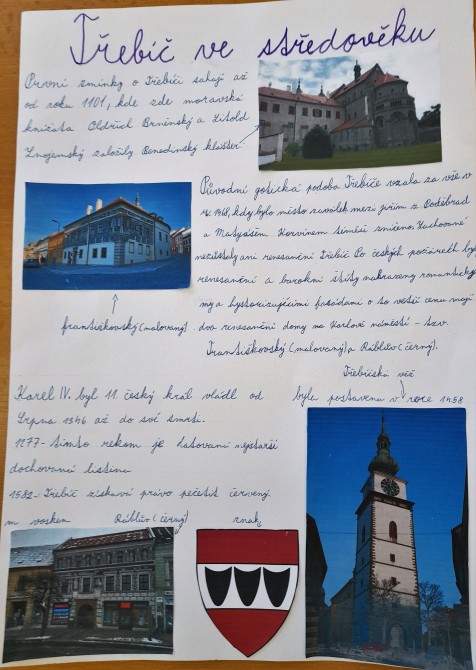 Třebíč ve středověku
Prvni zmínky o Třebíči sahají až
od roku 1101, kde zde moravská
knížata Oldřich Brněnský a Litold
Znojemský založily Benedinský klášter
Původní gotická podoba Třebíče vzala za vše v
r. 1468, kdy bylo město zaválek mezi jiřím z Poděbrad
a Matyášem Korvínem téměř zničeno. Zachované
nezůstaly ani renesanční Třebíč Po českých požárech byly
renesanční a barokní štíty nahrazeny romantický
my a hystorizujícími fasádami o to větší cenu mají
dva renesanční domy na Karlově náměstí - tzv.
Františkovský (malovaný) a Ráblův (černý).
františkovský (malovaný)
Třebíčská věž
byla postavena v roce 1458
Karel IV. byl 11. český král vládl od
Srpna 1346 až do své smrti.
1277 - tímto rokem je datovaná nejstarší
dochovaná listina
1582 - Třebíč získává právo pečetit červený
m voskem
Ráblův (černý)
znak